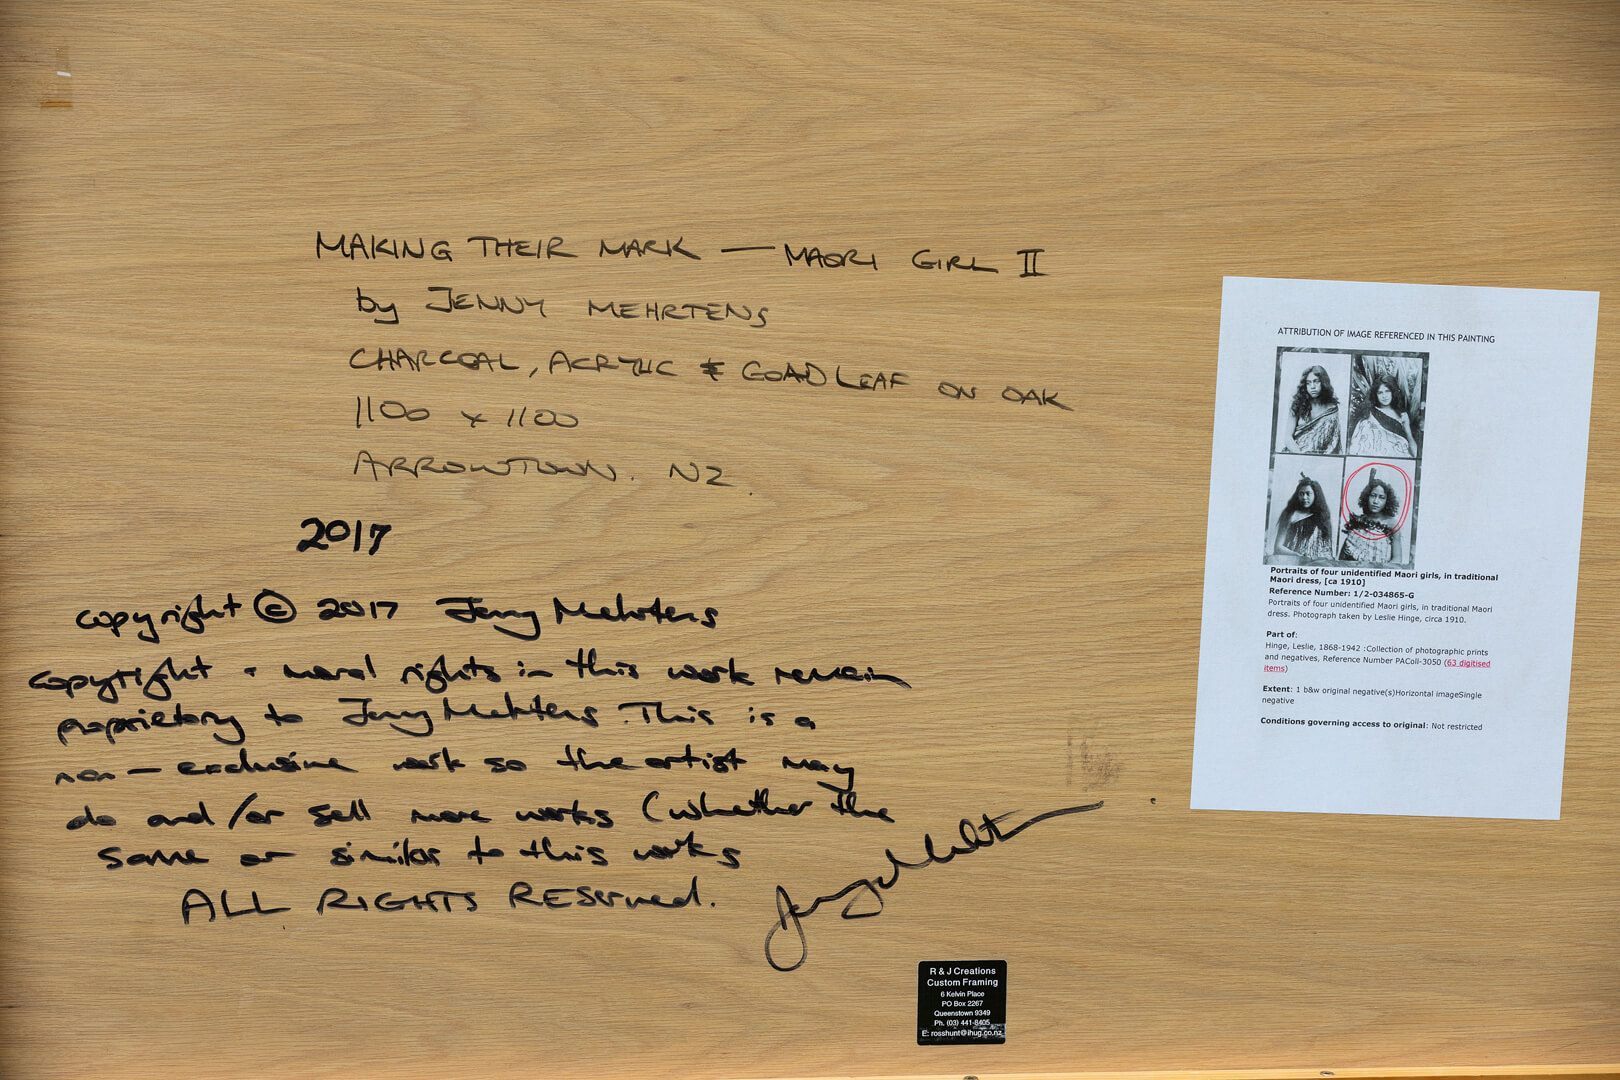 MAKING THEIR MARK — MAORI GIRL II
by JENNY MEHRTENS
CHARCOAL, ACRYLIC & GOLD LEAF ON OAK
1100 x 1100
ARROWTOWN. NZ.
2017
copyright © 2017 Jenny Mehrtens
copyright + moral rights in this work remain
proprietory to Jenny Mehrtens. This is a
non-exclusive work so the artist may
do and/or sell more works (whether the
same or similar to this works
ALL RIGHTS RESERVED.
Jenny Mehrtens
R & J Creations
Custom Framing
6 Kelvin Place
PO Box 2267
Queenstown 9349
Ph. (03) 441-8405
E: rosshunt@ihug.co.nz
ATTRIBUTION OF IMAGE REFERENCED IN THIS PAINTING
Portraits of four unidentified Maori girls, in traditional
Maori dress, [ca 1910]
Reference Number: 1/2-034865-G
Portraits of four unidentified Maori girls, in traditional Maori
dress. Photograph taken by Leslie Hinge, circa 1910.
Part of:
Hinge, Leslie, 1868-1942 :Collection of photographic prints
and negatives, Reference Number PAColl-3050 (63 digitised
items)
Extent: 1 b&w original negative(s)Horizontal imageSingle
negative
Conditions governing access to original: Not restricted